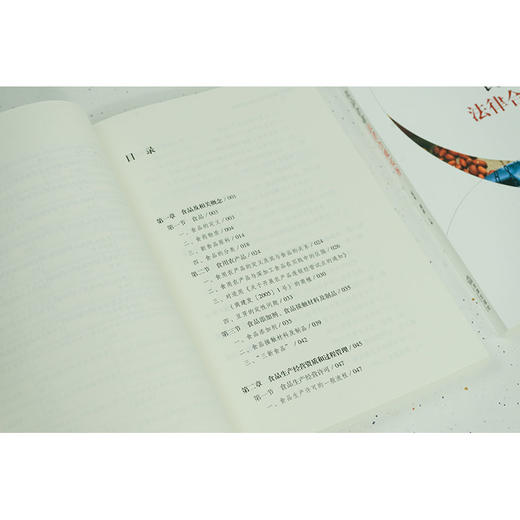 目 录
第一章 食品及相关概念 / 001
第一节 食品 / 003
一、食品的定义 / 003
二、食药物质 / 004
三、新食品原料 / 014
四、食品的分类 / 018
第二节 食用农产品 / 024
一、食用农产品的定义及其与食品的关系 / 024
二、食用农产品与深加工食品在实践中的区隔 / 026
三、对适用《关于开展农产品连锁经营试点的通知》
（商建发〔2005〕1号）的商榷 / 030
四、豆芽的定性问题 / 033
第三节 食品添加剂、食品接触材料及制品 / 035
一、食品添加剂 / 035
二、食品接触材料及制品 / 039
三、“三新食品” / 042
第二章 食品生产经营资质和过程管理 / 045
第一节 食品生产经营许可 / 047
一、食品生产许可的一般流程 / 047
法律合